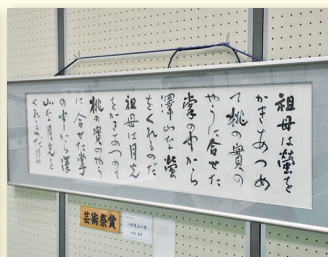 祖母は蛍を
かきあつめ
て桃の實の
やうに合せた
掌の中から
沢山な蛍
をくれるのだ
祖母は月光
をかきあつめて
桃の實のやう
に合せた掌
の中から沢
山な月光を
くれるのだ
芸術祭賞